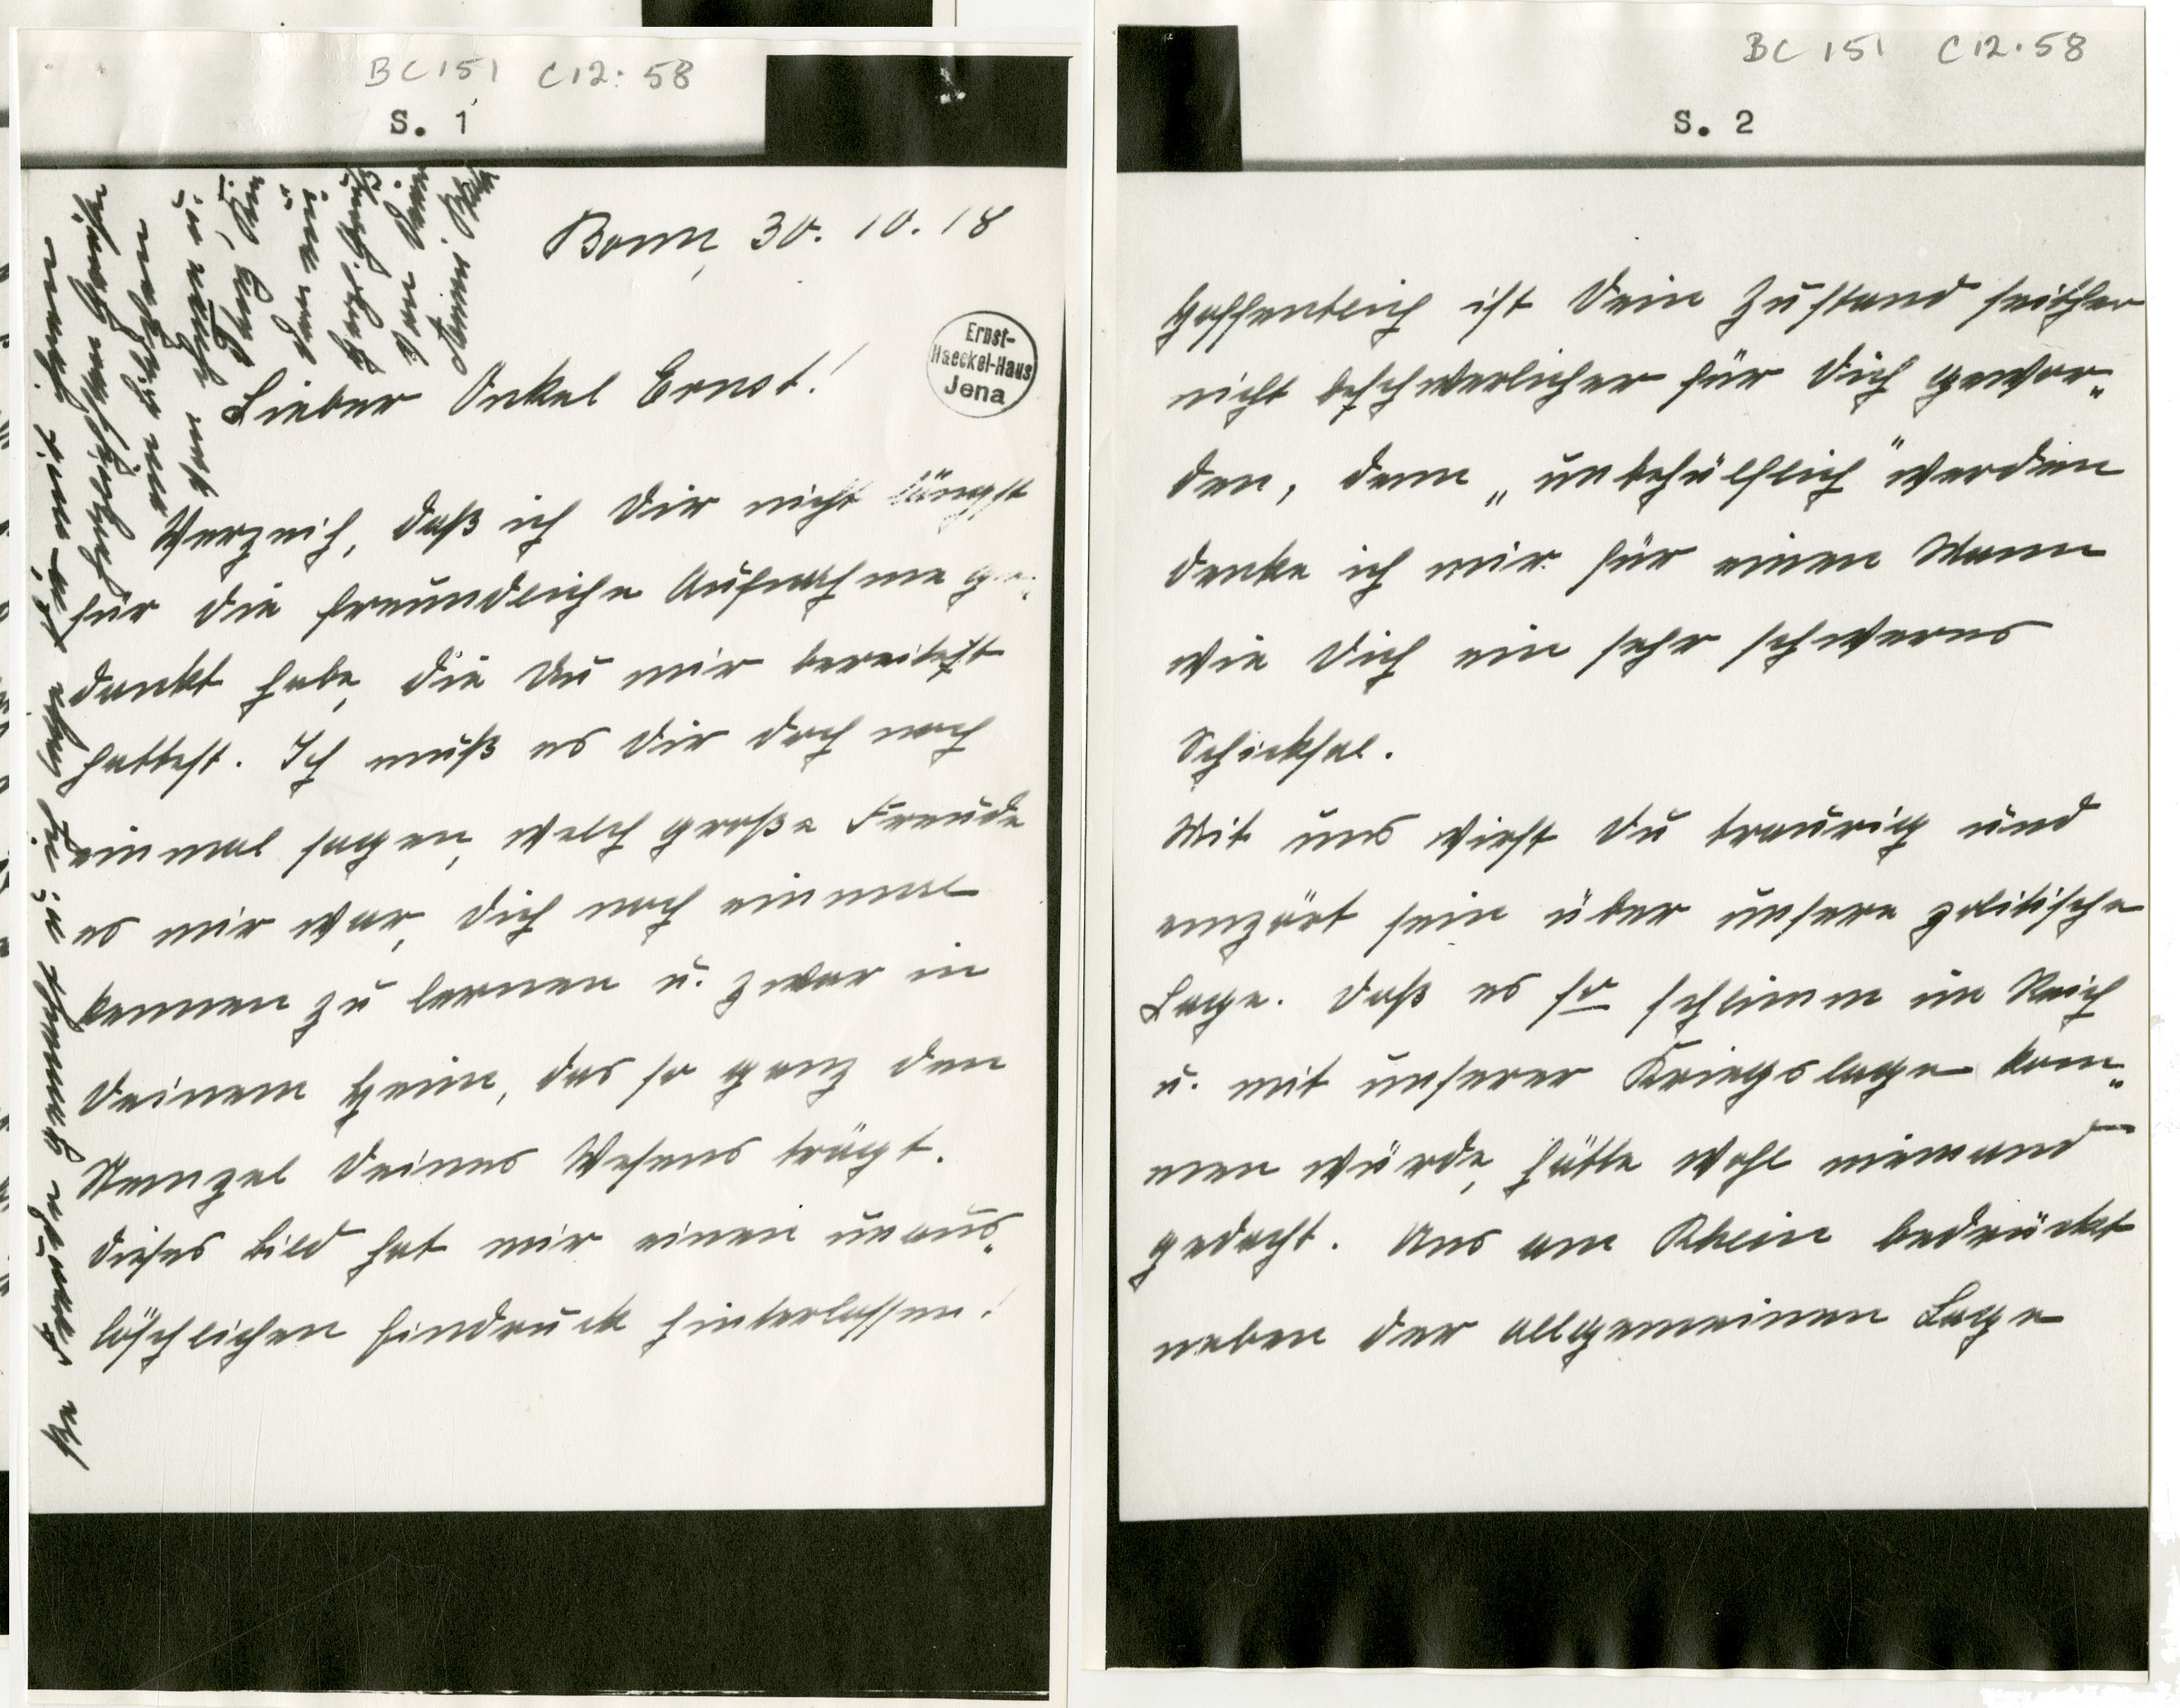 BC 151 C12: 58
S. 1
Bonn, 30. 10. 18
Ernst-
Haeckel-Haus
Jena
Lieber Onkel Ernst!
Verzeih, daß ich Dir nicht längst
für die freundliche Aufnahme ge-
dankt habe, die Du mir bereitest
hattest. Ich muß es Dir doch noch
einmal sagen, welch große Freude
es mir war, Dich noch einmal
kennen zu lernen u. zwar in
Deinem Heim, das so ganz den
Stempel Deines Wesens trägt.
Dieses Bild hat mir einen unaus-
löschlichen Eindruck hinterlassen!
herzl. Grüß
von Deiner
BC 151 C12.58
S. 2
Hoffentlich ist Dein Zustand seither
nicht beschwerlicher für Dich gewor-
den, denn „unbehülflich" werden
denke ich mir für einen Mann
wie Dich ein sehr schweres
Schicksal.
Mit uns wirst Du traurig und
empört sein über unsere politische
Lage. Daß es so schlimm im Reich
u. mit unserer Kriegslage kom-
men würde, hätte wohl niemand
gedacht. Uns am Rhein bedrückt
neben der allgemeinen Lage